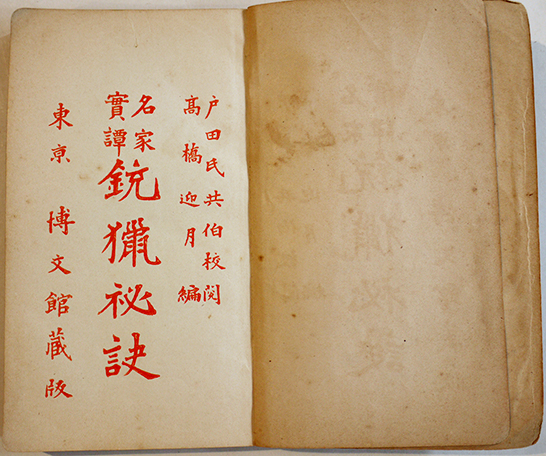 戸田氏共伯校閲
高橋迎月編
名家
實譚
銃獵祕訣
東京 博文館藏版